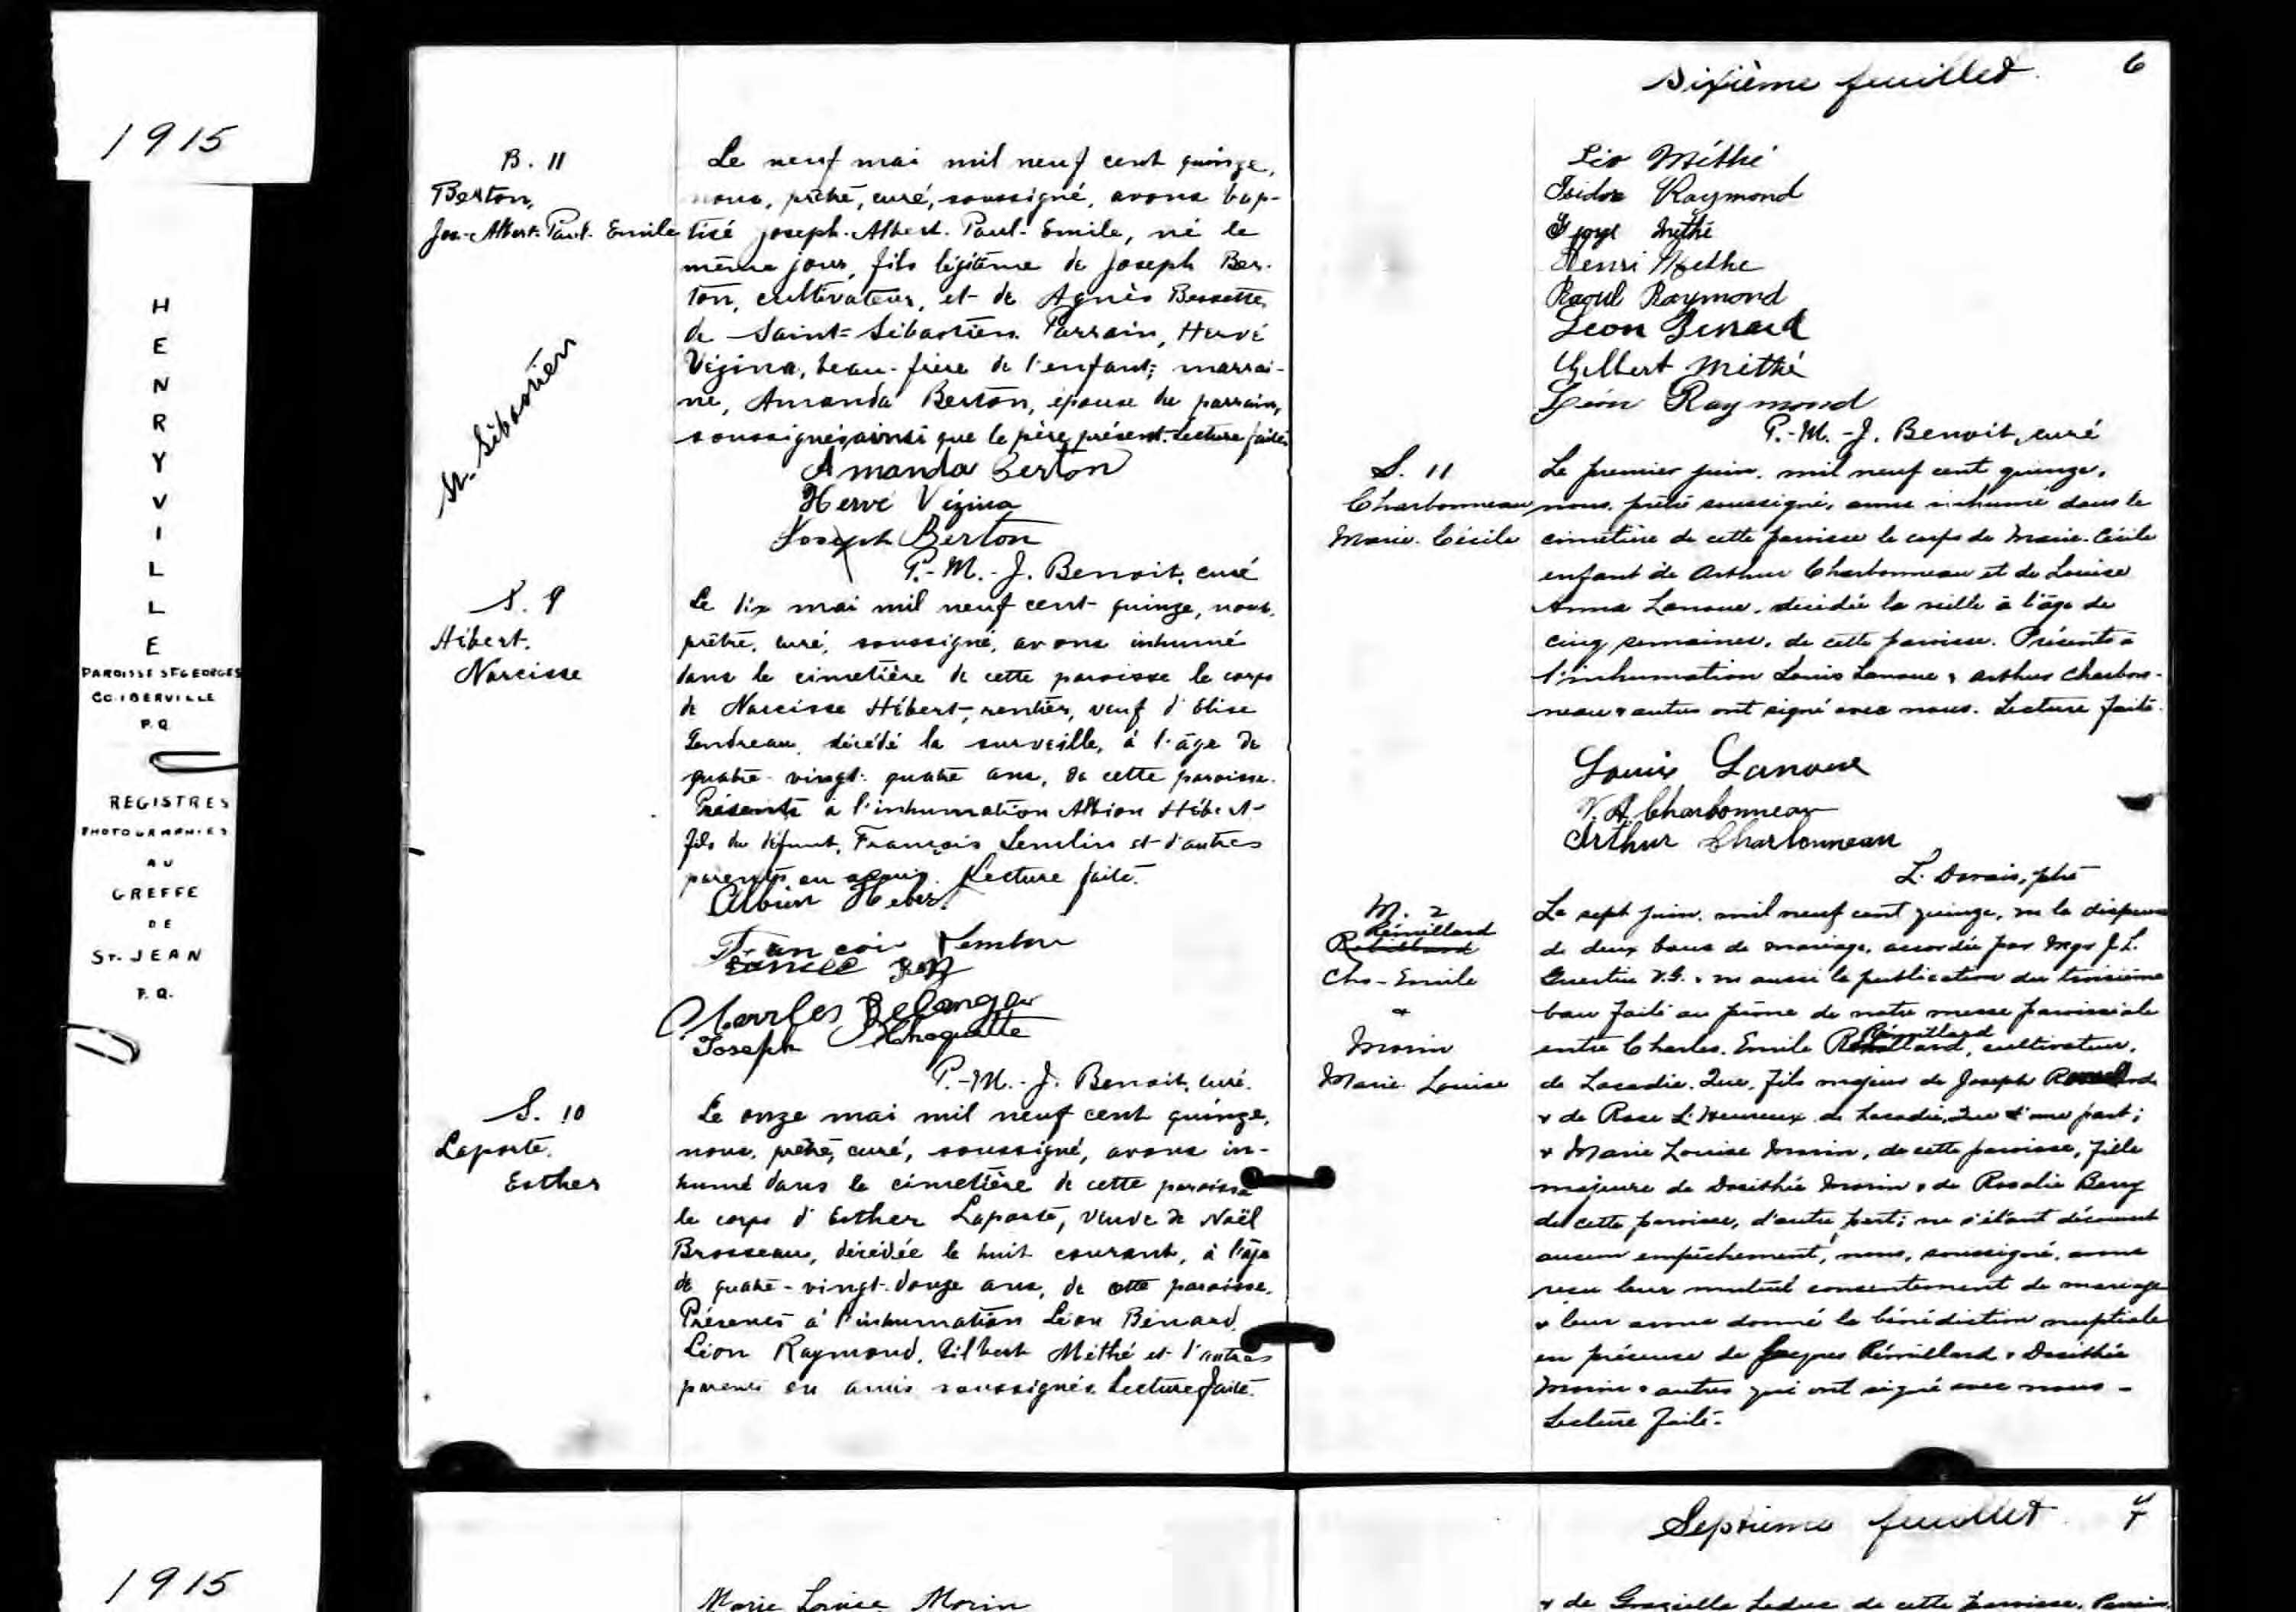 1915
HENRYVILLE
PAROISSE ST GEORGES
CO. IBERVILLE
P.Q.
REGISTRES
PHOTOGRAPHIÉS
AU
GREFFE
DE
ST. JEAN
P.Q.
1915
B. 11
Berton,
Jos.-Albert-Paul-Emile
St-Sébastien
Le neuf mai mil neuf cent quinze,
nous, prêtre, curé, soussigné, avons bap-
tisé Joseph-Albert-Paul-Emile, né le
même jour, fils légitime de Joseph Ber-
ton, cultivateur, et de Agnès Bessette,
de Saint-Sébastien. Parrain, Hervé
Vézina, beau-frère de l'enfant; marrai-
ne, Amanda Berton, épouse du parrain,
soussignés, ainsi que le père présent. Lecture faite.
Amanda Berton
Hervé Vézina
Joseph Berton
P.-M.-J. Benoit, curé
S. 9
Hébert,
Narcisse
Le dix mai mil neuf cent quinze, nous,
prêtre, curé, soussigné, avons inhumé
dans le cimetière de cette paroisse le corps
de Narcisse Hébert, rentier, veuf d'Elise
Gendreau, décédé la surveille, à l'âge de
quatre-vingt-quatre ans, de cette paroisse.
Présents à l'inhumation Albion Hébert
fils du défunt, François Lemlin et d'autres
parents ou amis. Lecture faite.
Albion Hebert
François Lemlin
Roy
Charles Belanger
Joseph Choquette
P.-M.-J. Benoit, curé.
S. 10
Laporte,
Esther
Le onze mai mil neuf cent quinze,
nous, prêtre, curé, soussigné, avons in-
humé dans le cimetière de cette paroisse
le corps d'Esther Laporte, veuve de Noël
Brosseau, décédée le huit courant, à l'âge
de quatre-vingt-douze ans, de cette paroisse.
Présents à l'inhumation Léon Bénard,
Léon Raymond, Gilbert Méthé et d'autres
parents ou amis soussignés. Lecture faite.
Sixième feuillet. 6
Léo Méthé
Isidor Raymond
George Méthé
Henri Methe
Raoul Raymond
Leon Benard
Gilbert Méthé
Léon Raymond
P.-M.-J. Benoit, curé
S. 11
Charbonneau
Marie-Cécile
Le premier juin, mil neuf cent quinze,
nous, prêtre soussigné, avons inhumé dans le
cimetière de cette paroisse le corps de Marie-Cécile
enfant de Arthur Charbonneau et de Louise
Anna Lanoue, décédée la veille à l'âge de
cinq semaines, de cette paroisse. Présents à
l'inhumation Louis Lanoue & Arthur Charbon-
neau & autres ont signé avec nous. Lecture faite.
Louis Lanoue
V. A. Charbonneau
Arthur Charbonneau
L. Dérais, ptre
M. 2
Rémillard
Robillard
Chs-Emile
&
Morin
Marie Louise
Le sept juin, mil neuf cent quinze, vu la dispense
de deux bans de mariage, accordée par Mgr J. L.
Guertin V.G. & vu aussi la publication du troisième
ban faite au prône de notre messe paroissiale
entre Charles-Emile Rémillard, cultivateur,
de Lacadie, Que, fils majeur de Joseph
& de Rose L'Heureux de Lacadie, Que d'une part;
& Marie Louise Morin, de cette paroisse, fille
majeure de Dosithée Morin & de Rosalie Berry
de cette paroisse, d'autre part; ne s'étant découvert
aucun empêchement, nous, soussigné, avons
reçu leur mutuel consentement de mariage
& leur avons donné la bénédiction nuptiale
en présence de Jacques Rémillard & Dosithée
Morin & autres qui ont signé avec nous -
Lecture faite.
Septième feuillet 7
Marie Louise Morin
& de Graziella Leduc de cette paroisse. Parrain,